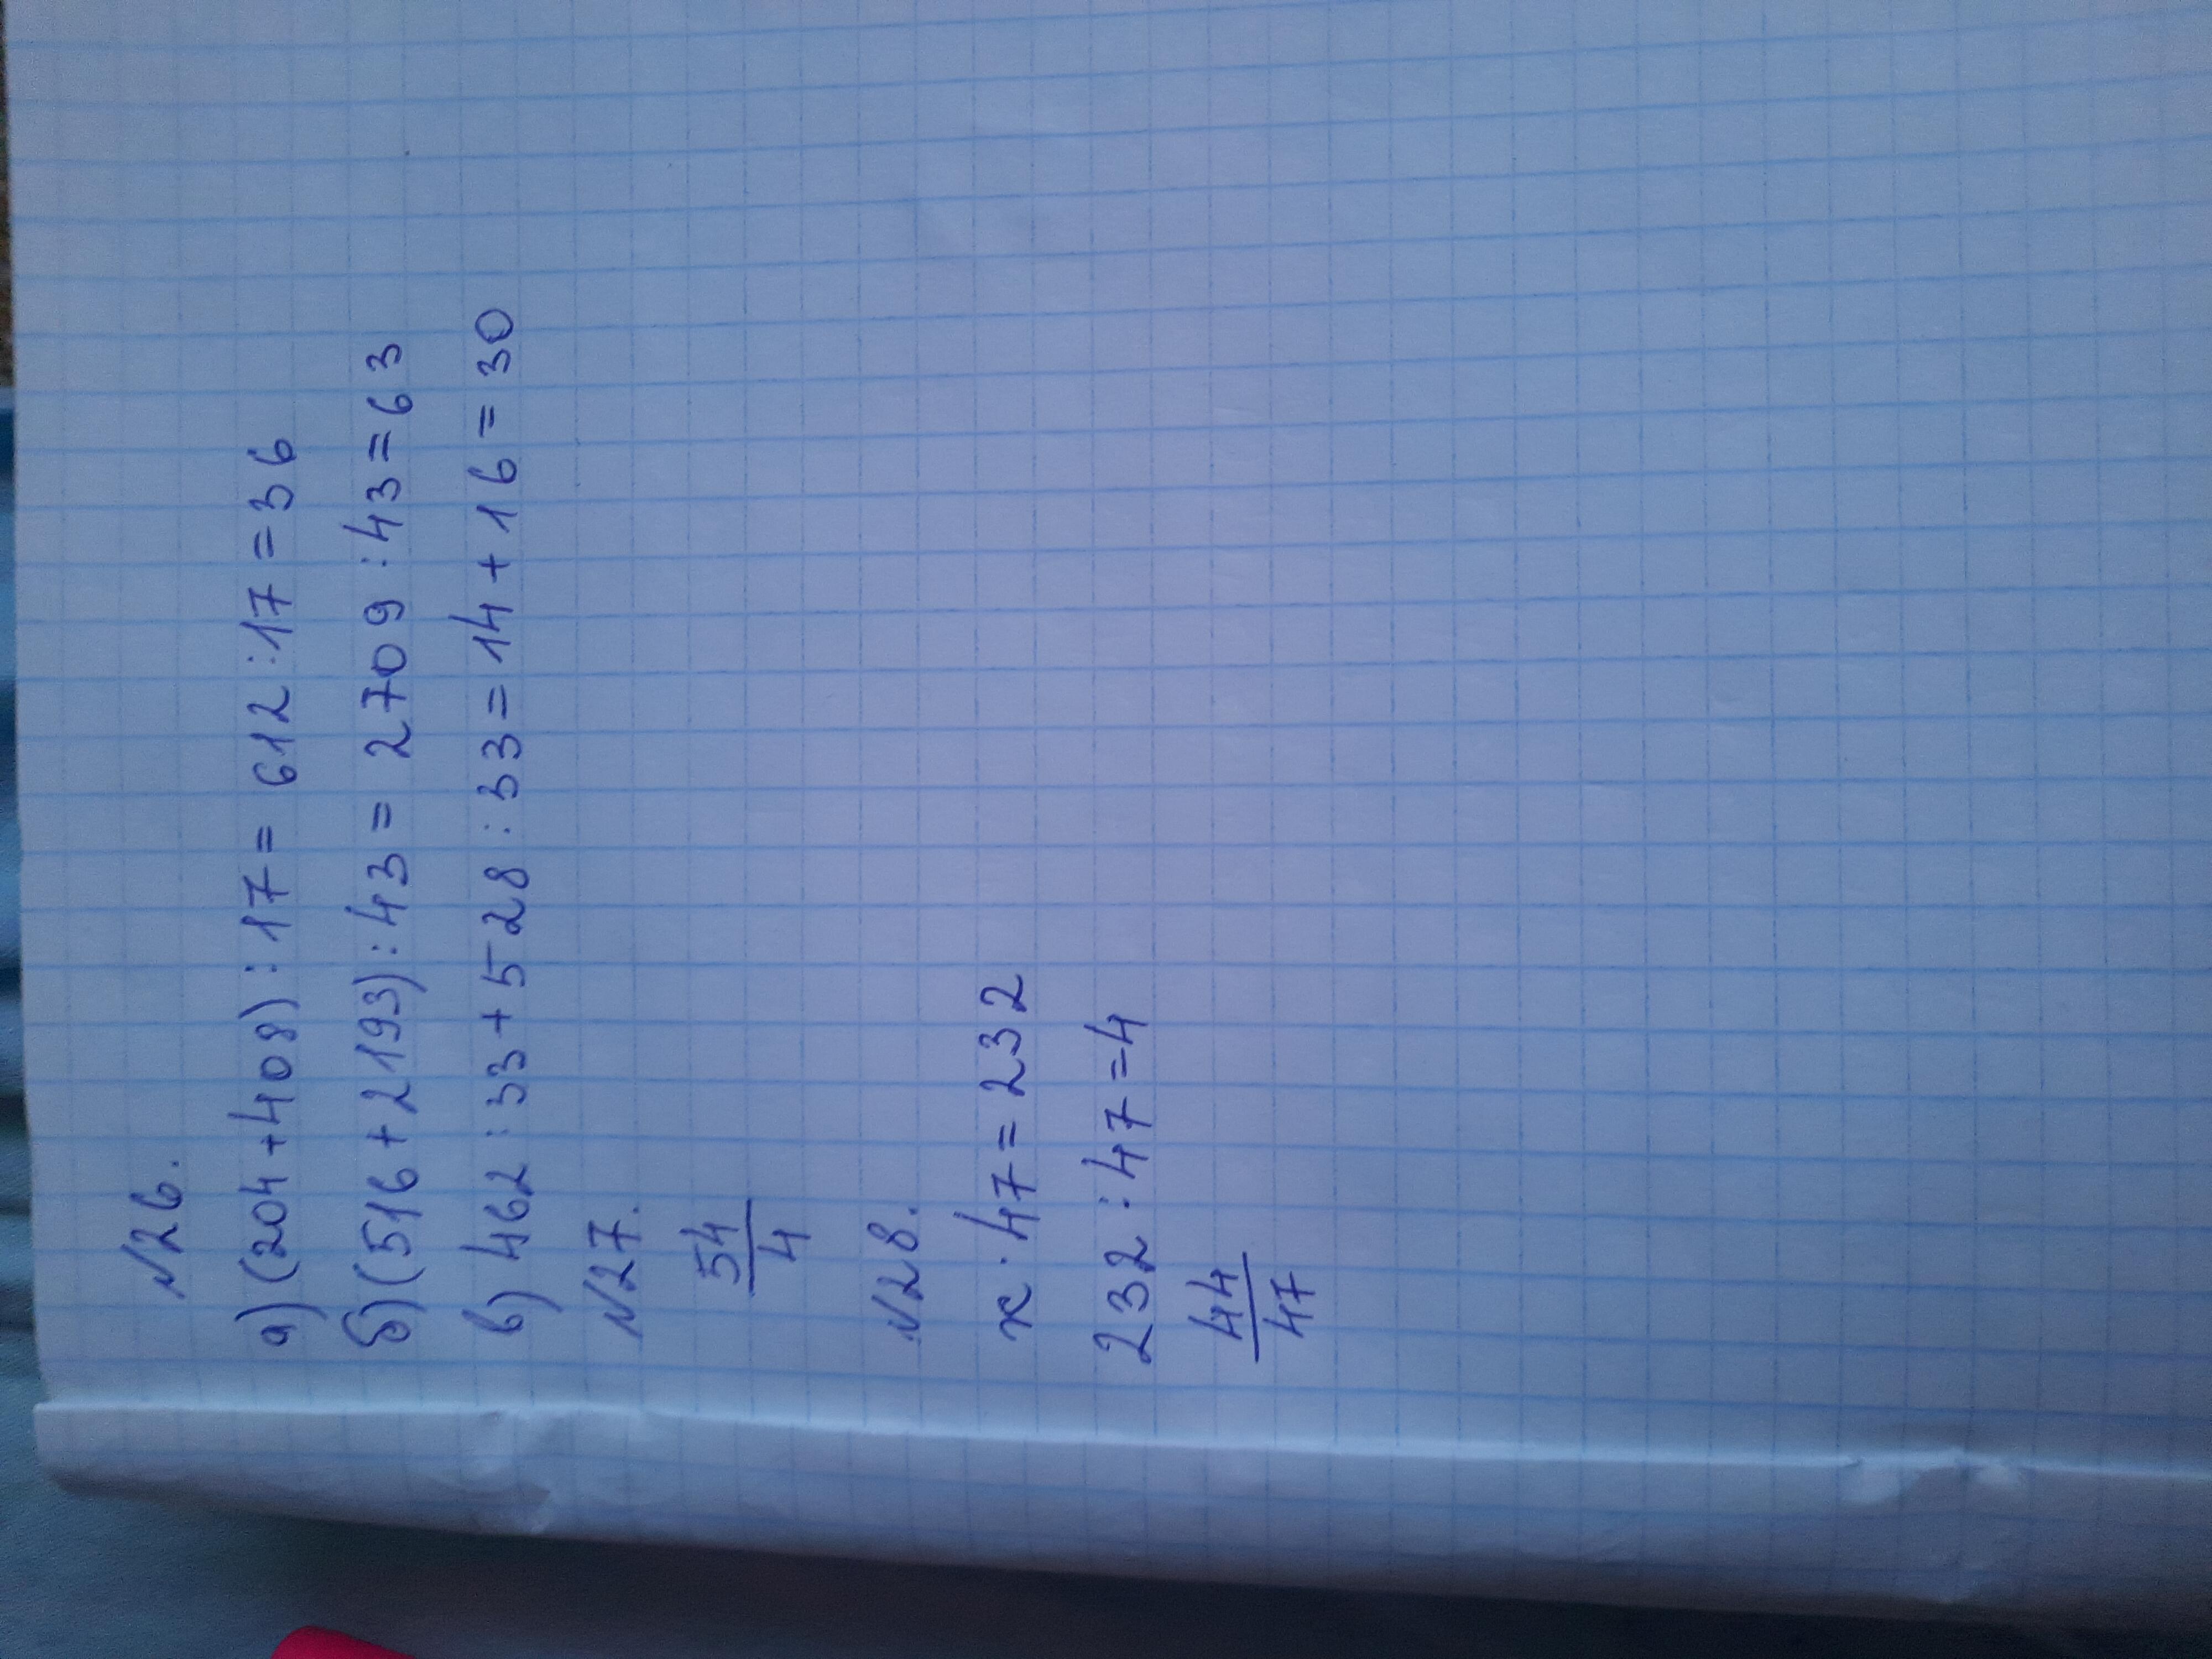 №26.
а) (204+408):17=612:17=36
б) (516+2193):43=2709:43=63
в) 462:33+528:33=14+16=30
№27.
54
4
№28.
x·47=232
232:47=4
44
47